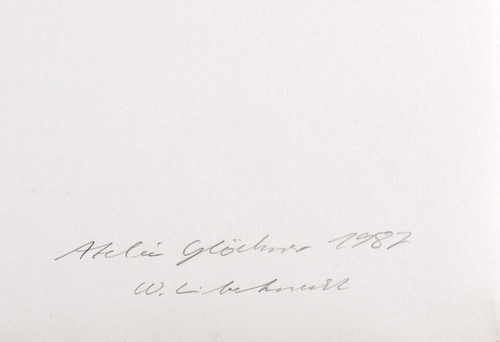 Atelier Glöckner 1987
W. Libeknecht